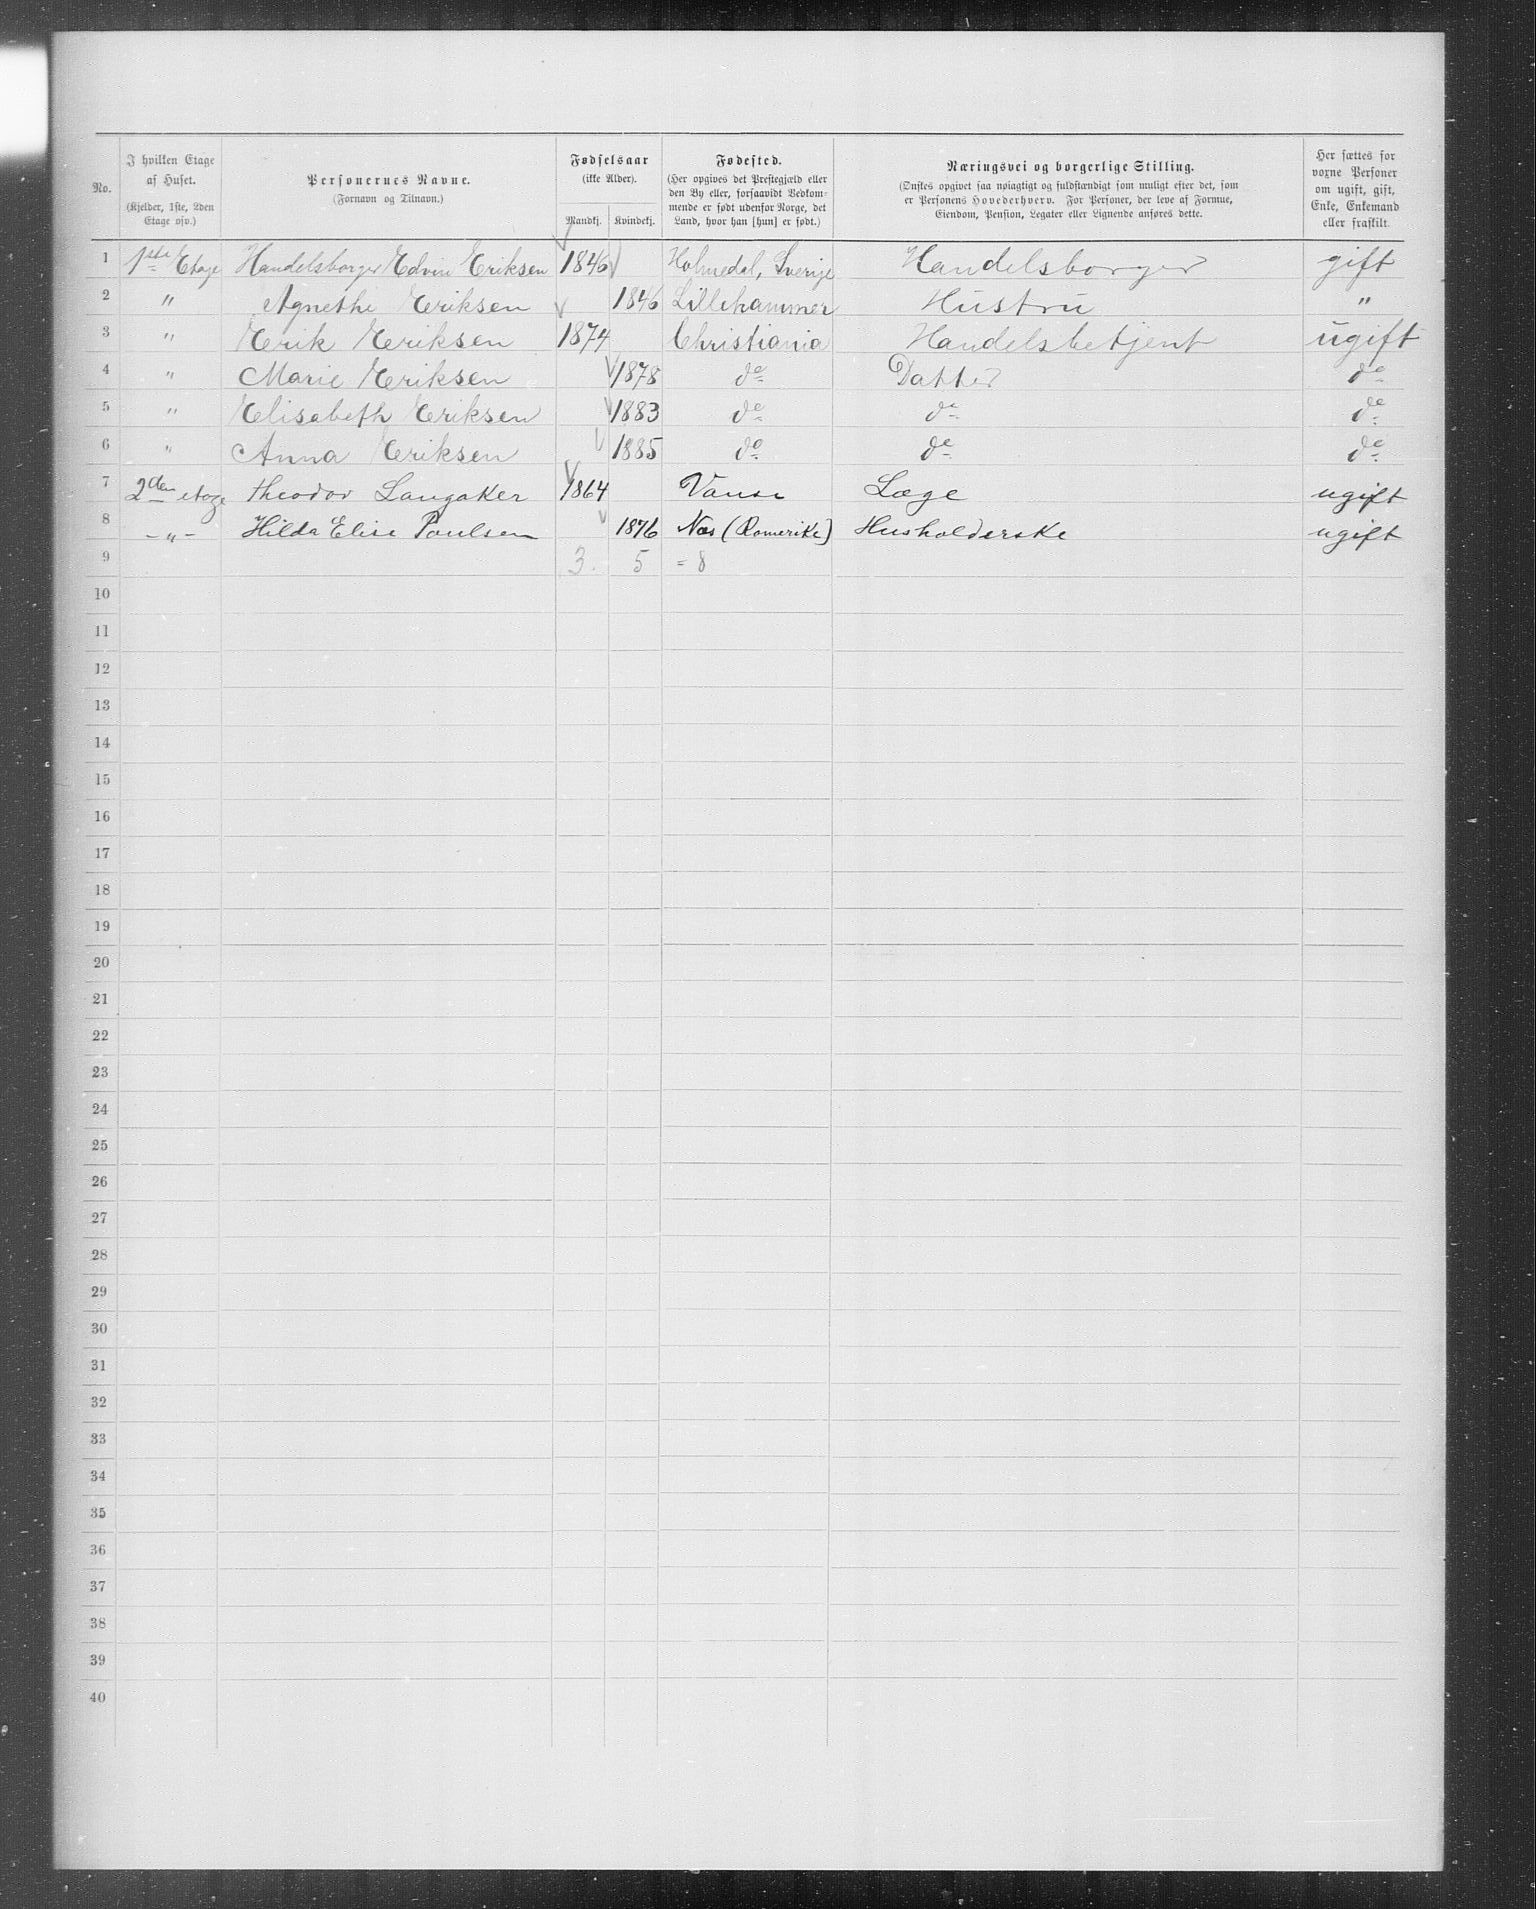 No.
I hvilken Etage af Huset.
(Kjelder, 1ste, 2den Etage osv.)
Personernes Navne.
(Fornavn og Tilnavn.)
Fødselsaar
(ikke Alder).
Mandkj. Kvindekj.
Fødested.
(Her opgives det Prestegjæld eller den By eller, forsaavidt Vedkommende er født udenfor Norge, det Land, hvor han [hun] er født.)
Næringsvei og borgerlige Stilling.
(Ønskes opgivet saa nøiagtigt og fuldstændigt som muligt efter det, som er Personens Hovederhverv. For Personer, der leve af Formue, Eiendom, Pension, Legater eller Lignende anføres dette.
Her sættes for voxne Personer om ugift, gift, Enke, Enkemand eller fraskilt.
1 1ste Etage Handelsborger Edvin Eriksen 1846 Holmedal, Sverige Handelsborger gift
2 " Agnethe Eriksen 1846 Lillehammer Hustru "
3 " Erik Eriksen 1874 Christiania Handelsbetjent ugift
4 " Marie Eriksen 1878 do Datter do
5 " Elisabeth Eriksen 1883 do do do
6 " Anna Eriksen 1885 do do do
7 2den etage Theodor Langaker 1864 Vanse Læge ugift
8 -"- Hilda Elise Poulsen 1876 Næs (Romerike) Husholderske ugift
9 3. 5 = 8
10
11
12
13
14
15
16
17
18
19
20
21
22
23
24
25
26
27
28
29
30
31
32
33
34
35
36
37
38
39
40